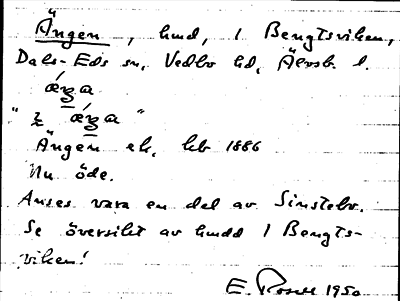 Ängen, hmd, i Bengtsviken,
Dals-Eds sn, Vedbo hd, Älvsb. l.
ǽŋa
"i ǽŋa"
Ängen ek. kb 1886
Nu öde.
Anses vara en del av Sinstebo.
Se översikt av hmdd i Bengts-
viken!
E. 1950